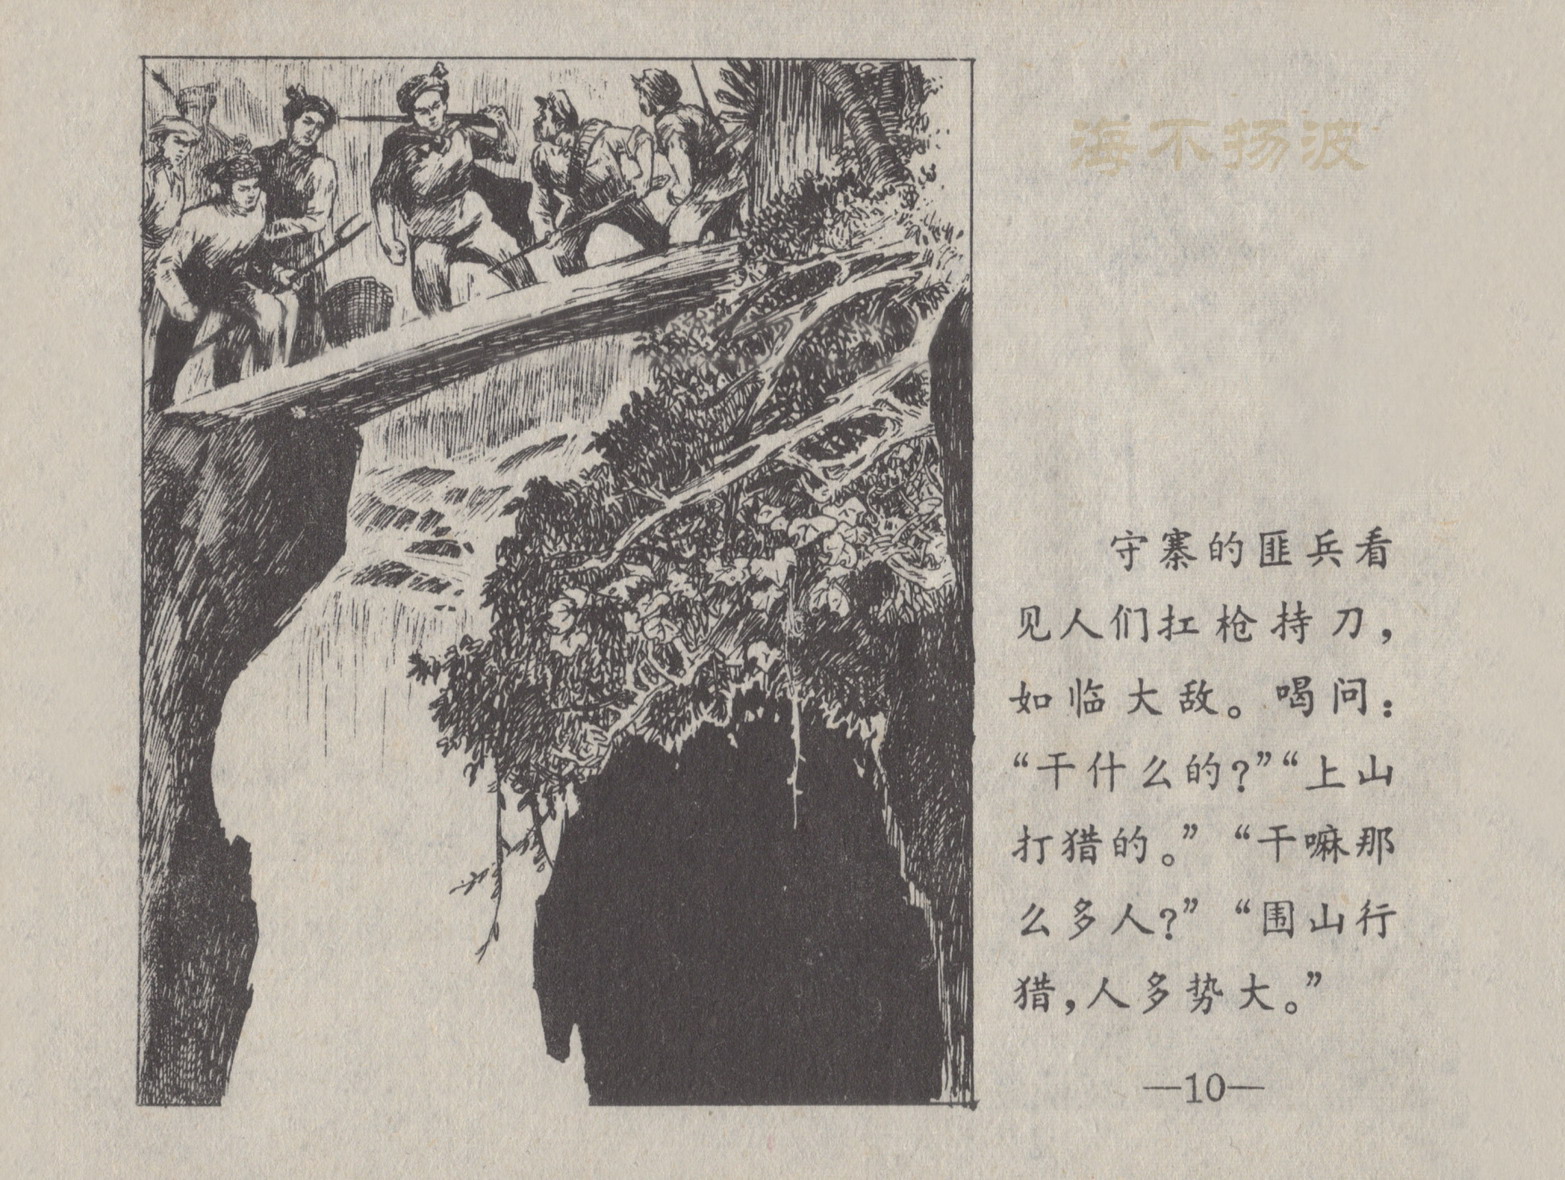 海不扬波
守寨的匪兵看
见人们扛枪持刀，
如临大敌。喝问：
“干什么的？”“上山
打猎的。”“干嘛那
么多人？”“围山行
猎，人多势大。”
—10—